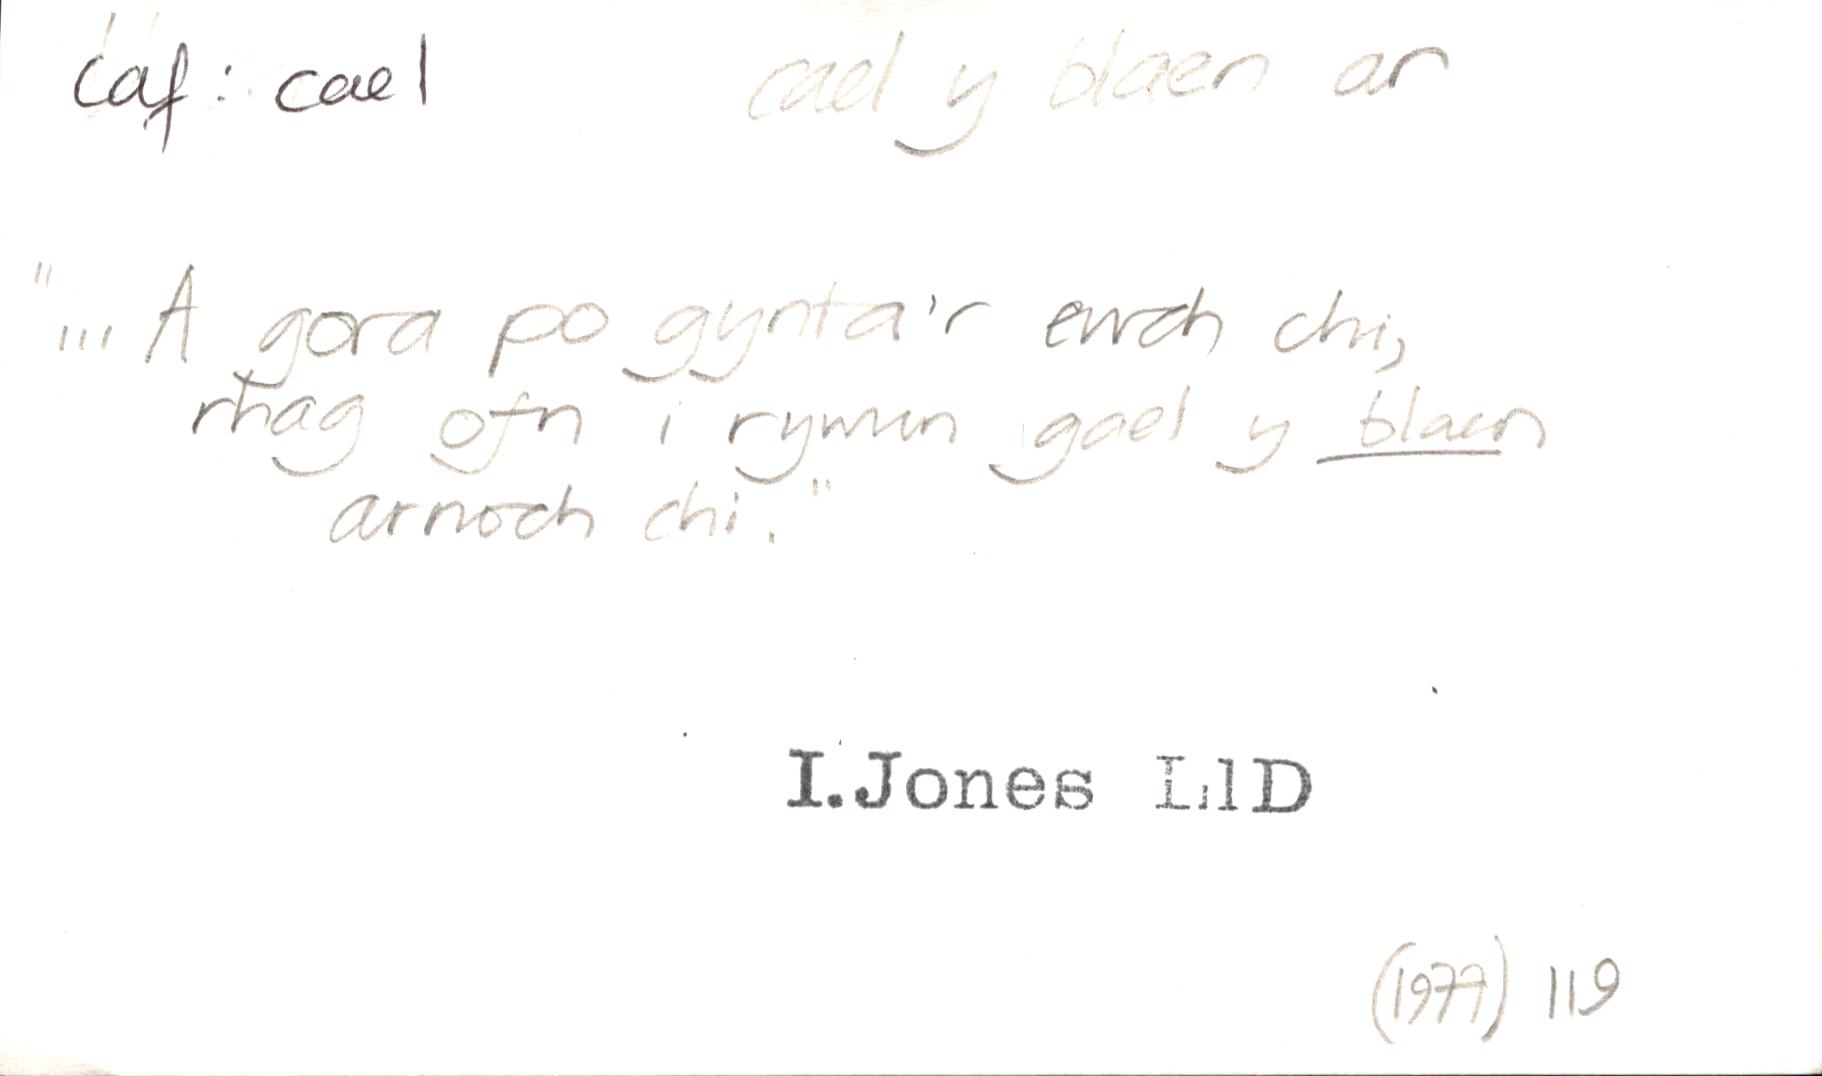 caf: cael cael y blaen ar
"... A gora po gynta'r ewch chi,
rhag ofn i rywun gael y blaen
arnoch chi."
I.Jones LlD
(1977) 119